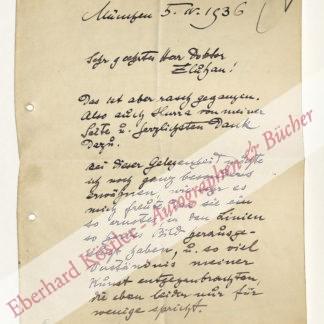 München 5. IV. 1936
Sehr geehrter Herr Doktor
Eluhan!
Das ist aber rasch gegangen.
Also auch Hurra von meiner
Seite u. herzlichsten Dank
dazu.
Bei dieser Gelegenheit
ich noch ganz besonders
erwähnen, wie es
mich freut, sie ein
so ernstes in den Linien
so Bild herausge-
haben, u. so viel
Verständnis meiner
Kunst entgegenbrachten
die eben leider nur für
wenige spricht.
Eberhard Köstler - Autographen & Bücher